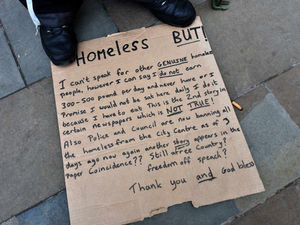 HOMELESS BUT!
I can't speak for other GENUINE homeless
people, however I can say I do not earn
300-500 pound per day and never have or I
Promise I would not be sat here daily I do it
because I have to eat This is the 2nd story in
certain newspapers which is NOT TRUE!
Also Police and Council are now banning all
the homeless from the City Centre as of 3
days ago now again another story appears in the
Paper Coincidence?? Still a free Country?
freedom off speech?
Thank you and God bless